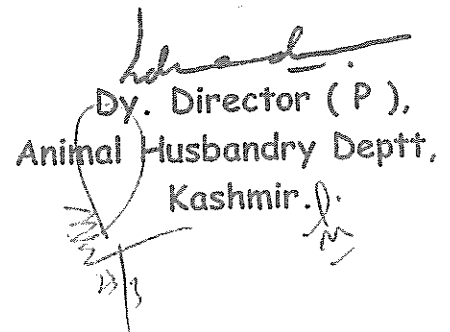 Dy. Director ( P ),
Animal Husbandry Deptt,
Kashmir.